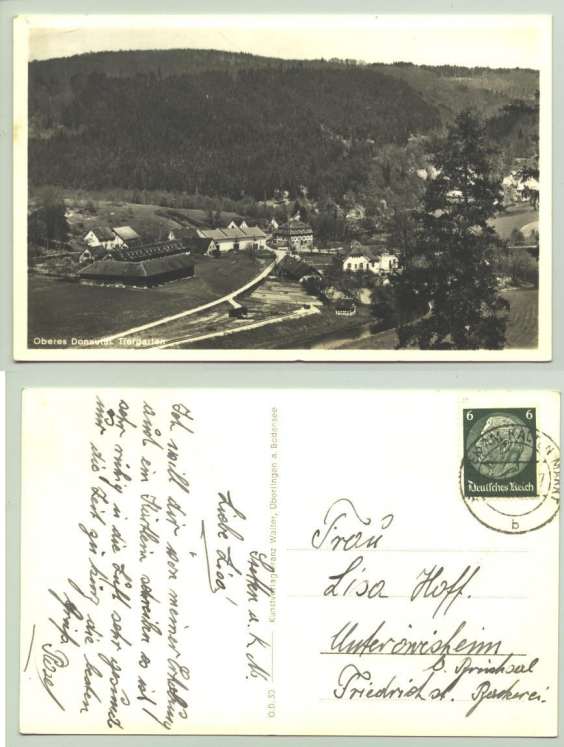 Oberes Donautal. Tiergarten
6 6
Deutsches Reich
b
Stetten a. k. M.
Liebe Lisa!
Ich will dir von meiner Erholung
auch ein Kärtlein schreiben es ist
sehr ruhig u die Luft sehr gesund
mir die Zeit zu kurz die besten
Grüße
Kunstverlag Franz Walter, Überlingen a. Bodensee
O.D. 53
Frau
Lisa Hoff.
Unteröwisheim
b. Bruchsal
Friedrichst. Bäckerei.